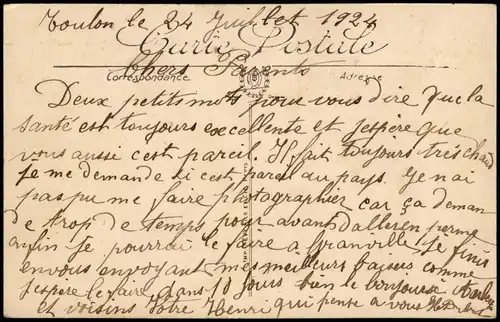 Toulon le 24 Juillet 1924
Carte Postale
Chers Parents
Correspondance Adresse
Deux petits mots pour vous dire que la
santé est toujours excellente et j'espère que
vous aussi c'est pareil. Il fait toujours très chaud
je me demande si c'est pareil au pays. Je n'ai
pas pu me faire photographier car ça deman
de trop de temps pour avant d'aller en perme
enfin je pourrai le faire a Granville. Je finis
en vous envoyant mes meilleurs baisers comme
j'espère le faire dans 10 jours bien le bonjour a
et voisins Votre Henri qui pense a vous